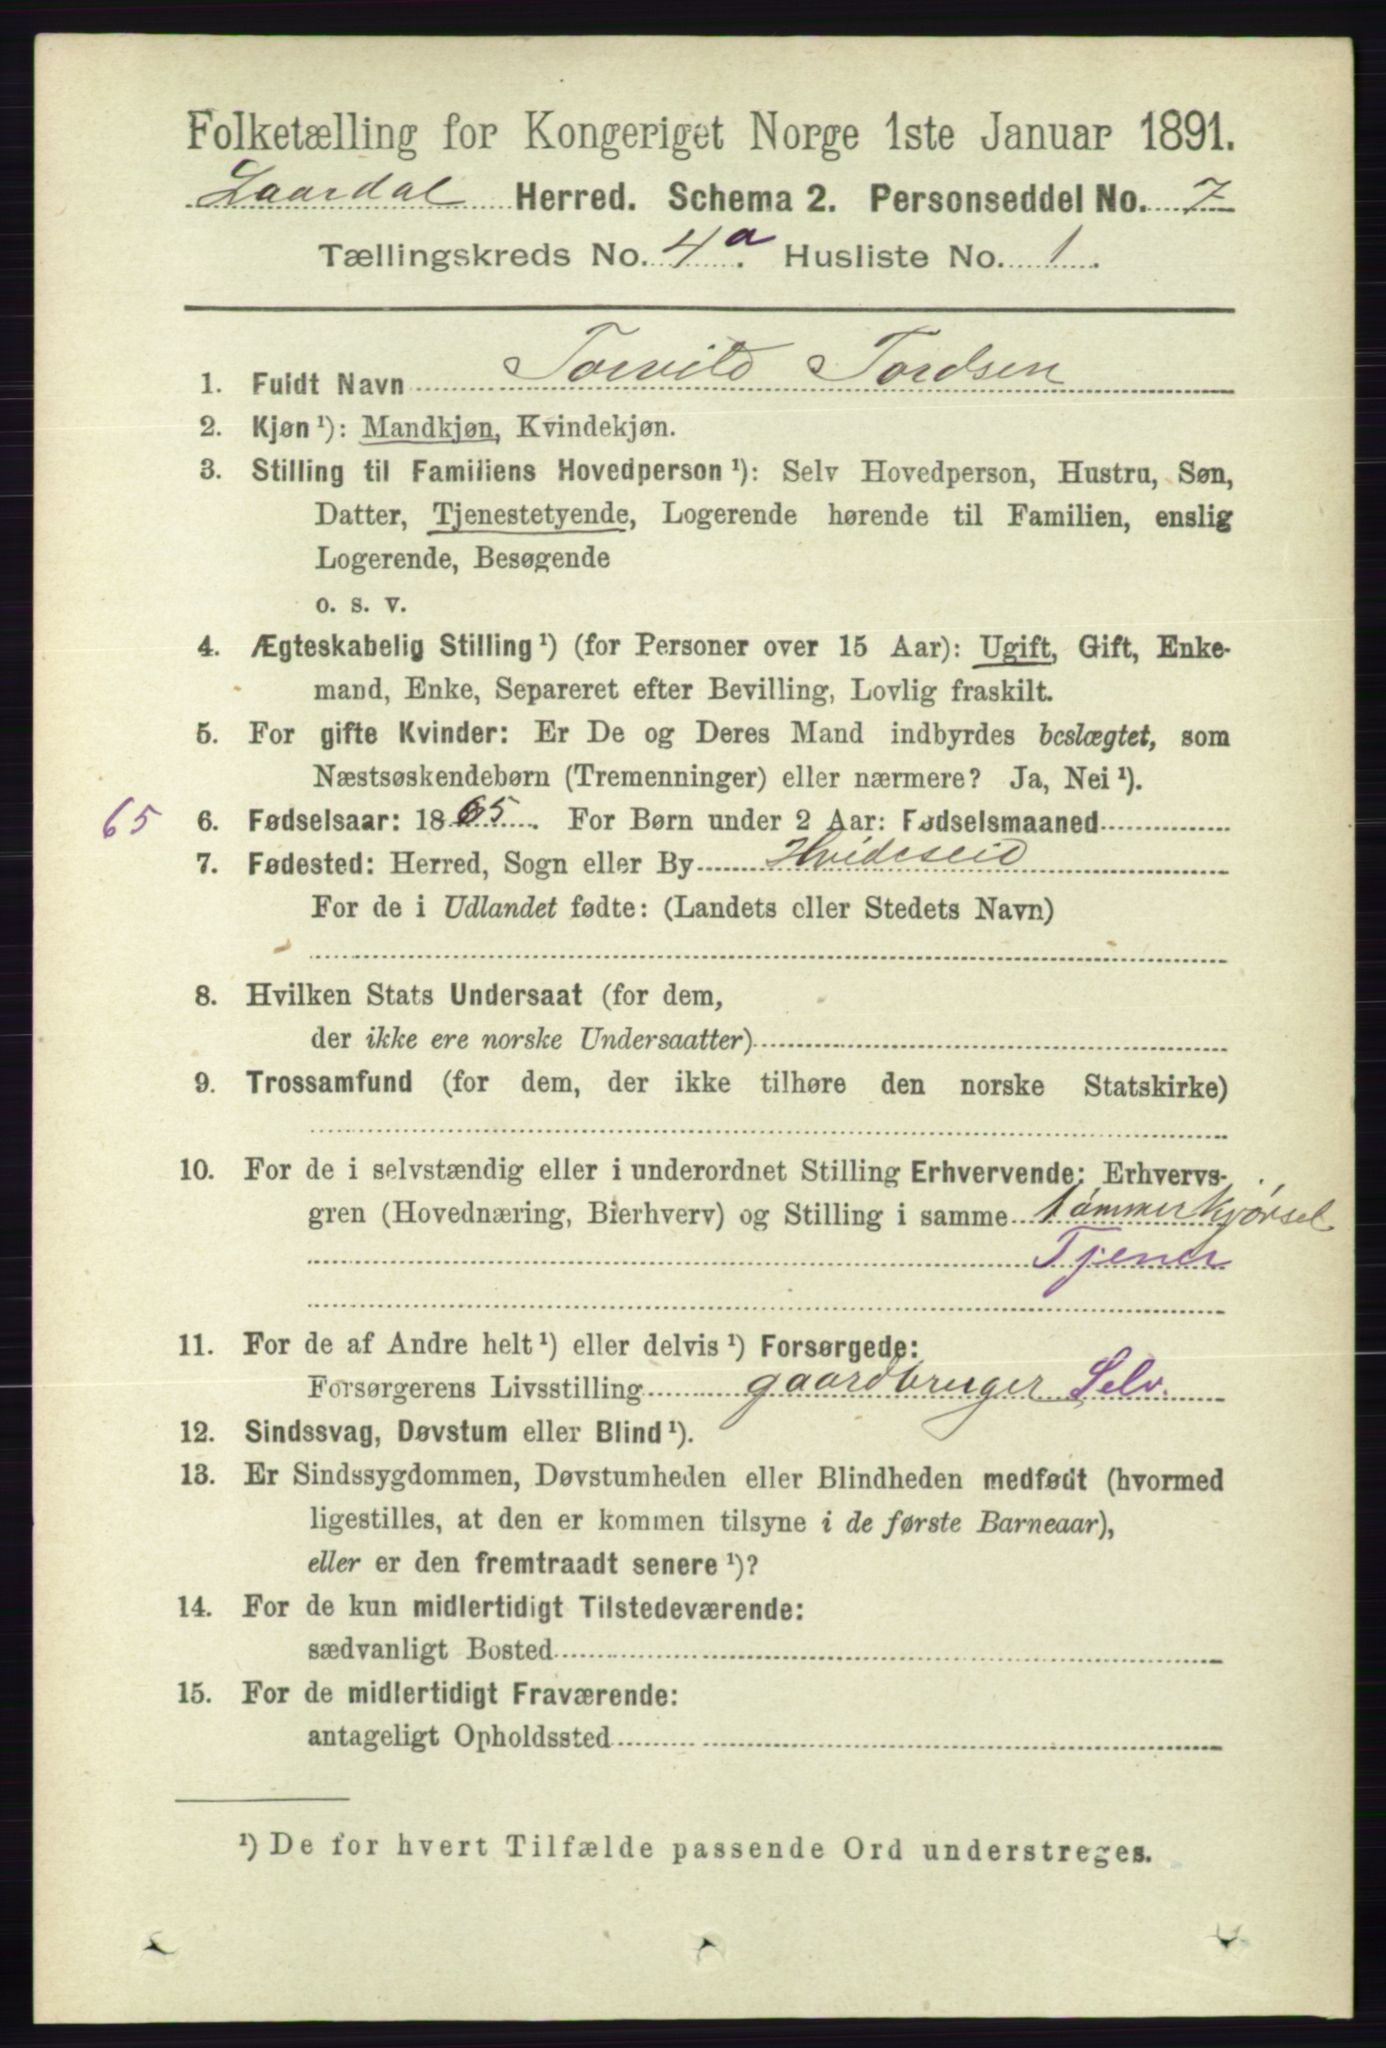 Folketælling for Kongeriget Norge 1ste Januar 1891.
Laardal Herred. Schema 2. Personseddel No. 7
Tællingskreds No. 4a. Husliste No. 1.
1. Fuldt Navn Torvild Tordsen
2. Kjøn ¹): Mandkjøn, Kvindekjøn.
3. Stilling til Familiens Hovedperson ¹): Selv Hovedperson, Hustru, Søn,
Datter, Tjenestetyende, Logerende hørende til Familien, enslig
Logerende, Besøgende
o. s. v.
4. Ægteskabelig Stilling ¹) (for Personer over 15 Aar): Ugift, Gift, Enke-
mand, Enke, Separeret efter Bevilling, Lovlig fraskilt.
5. For gifte Kvinder: Er De og Deres Mand indbyrdes beslægtet, som
Næstsøskendebørn (Tremenninger) eller nærmere? Ja, Nei ¹).
65 6. Fødselsaar: 1865. For Børn under 2 Aar: Fødselsmaaned
7. Fødested: Herred, Sogn eller By Hvideseid
For de i Udlandet fødte: (Landets eller Stedets Navn)
8. Hvilken Stats Undersaat (for dem,
der ikke ere norske Undersaatter)
9. Trossamfund (for dem, der ikke tilhøre den norske Statskirke)
10. For de i selvstændig eller i underordnet Stilling Erhvervende: Erhvervs-
gren (Hovednæring, Bierhverv) og Stilling i samme tømmerkjørsel
Tjener
11. For de af Andre helt ¹) eller delvis ¹) Forsørgede:
Forsørgerens Livsstilling gaardbruger Selv.
12. Sindssvag, Døvstum eller Blind ¹).
13. Er Sindssygdommen, Døvstumheden eller Blindheden medfødt (hvormed
ligestilles, at den er kommen tilsyne i de første Barneaar),
eller er den fremtraadt senere ¹)?
14. For de kun midlertidigt Tilstedeværende:
sædvanligt Bosted
15. For de midlertidigt Fraværende:
antageligt Opholdssted
¹) De for hvert Tilfælde passende Ord understreges.